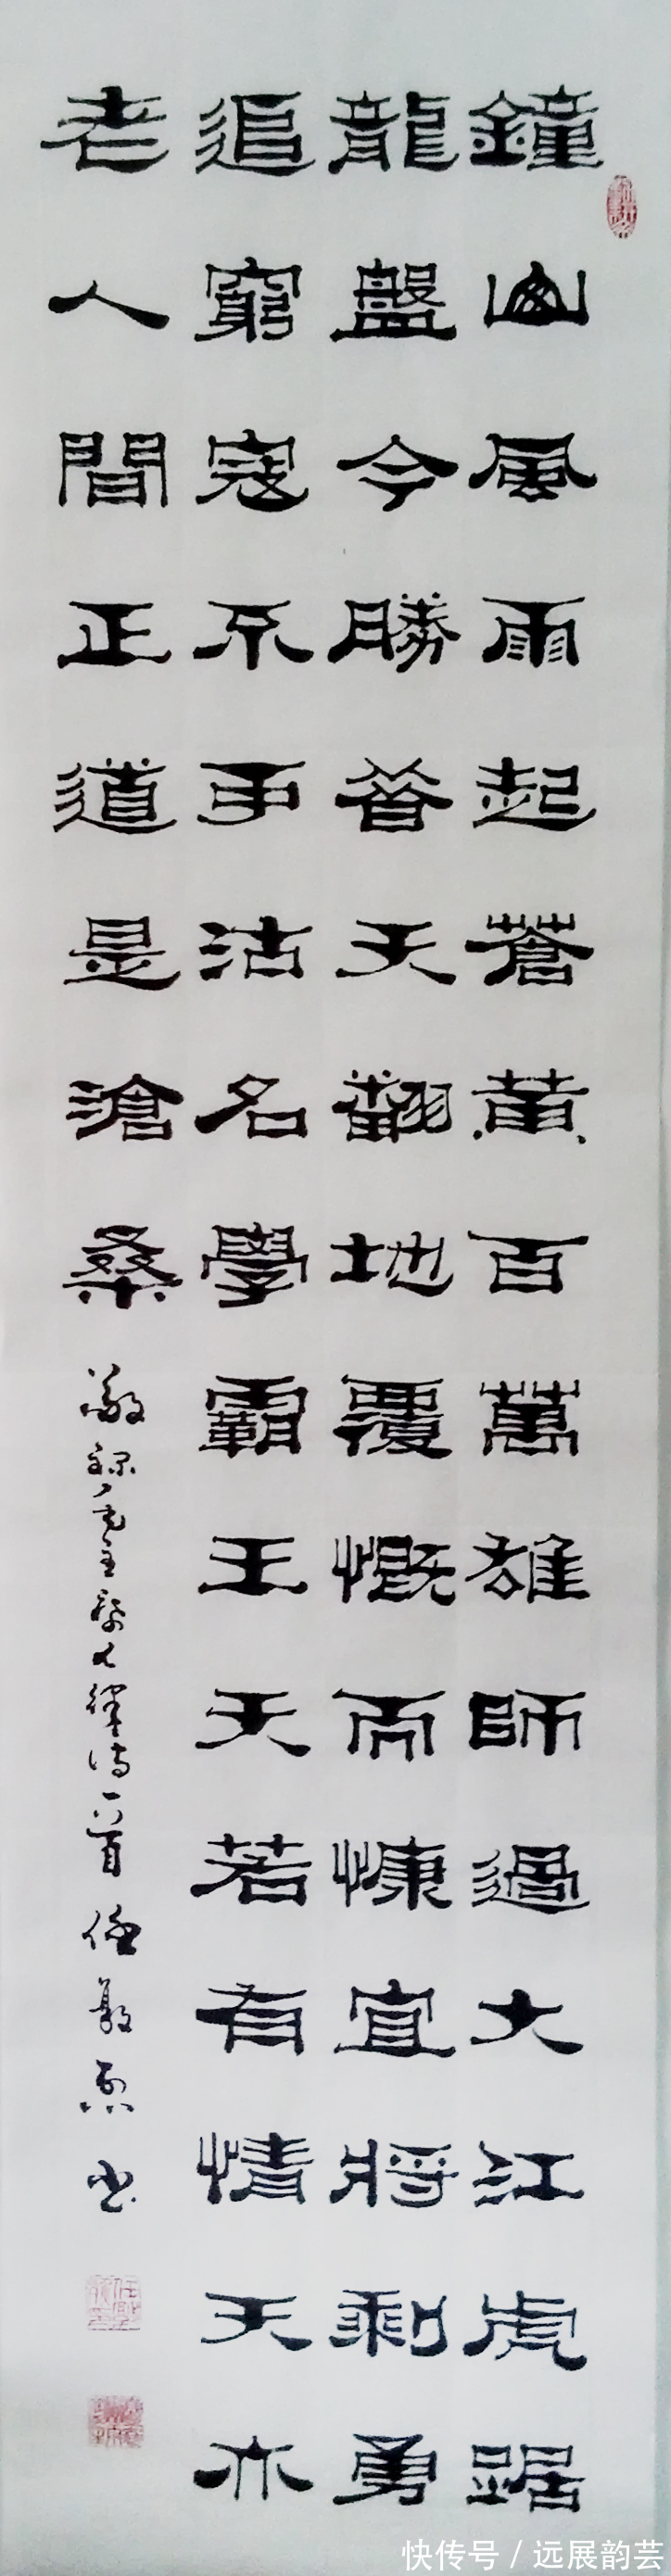 鐘山風雨起蒼黄百萬雄師過大江虎踞
龍盤今勝昔天翻地覆慨而慷宜將剩勇
追窮寇不可沽名學霸王天若有情天亦
老人間正道是滄桑
敬錄毛主席七律诗一首 任
快传号 / 远展韵芸